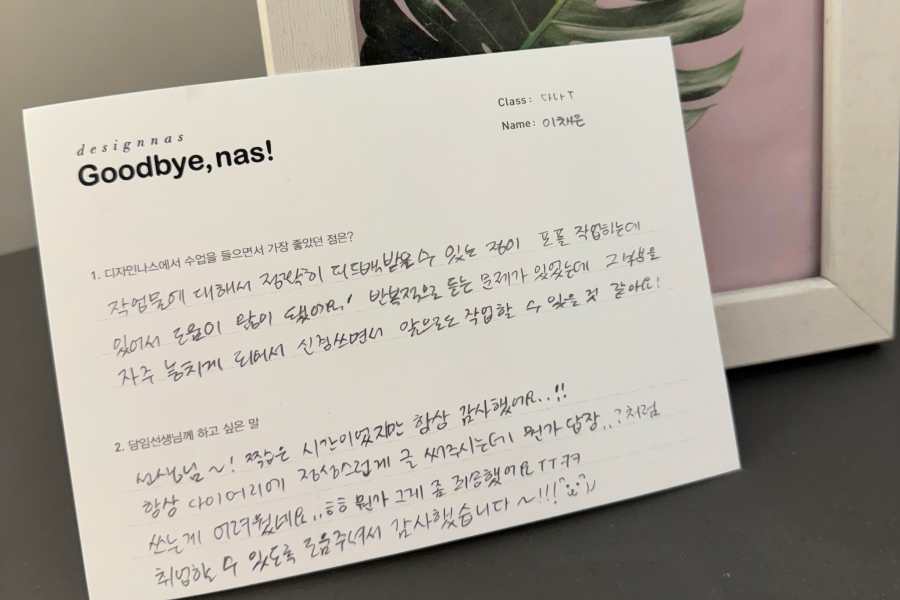 designnas
Goodbye, nas!
Class: 다나T
Name: 이채운
1. 디자인나스에서 수업을 들으면서 가장 좋았던 점은?
작업물에 대해서 정확히 피드백받을수 있는 점이 포폴 작업하는데
있어서 도움이 많이 됐어요! 반복적으로 듣는 문제가 있었는데 그부분을
자주 놓치게 되어서 신경쓰면서 앞으로도 작업할 수 있을 것 같아요!
2. 담임선생님께 하고 싶은 말
선생님~! 짧은 시간이었지만 항상 감사했어요..!!
항상 다이어리에 정성스럽게 글 써주시는데 뭔가 답장..?처럼
쓰는게 어려웠네요..ㅎㅎ 뭔가 그게 좀 죄송했어요ㅜㅜㅋㅋ
취업할 수 있도록 도움주셔서 감사했습니다~!!!